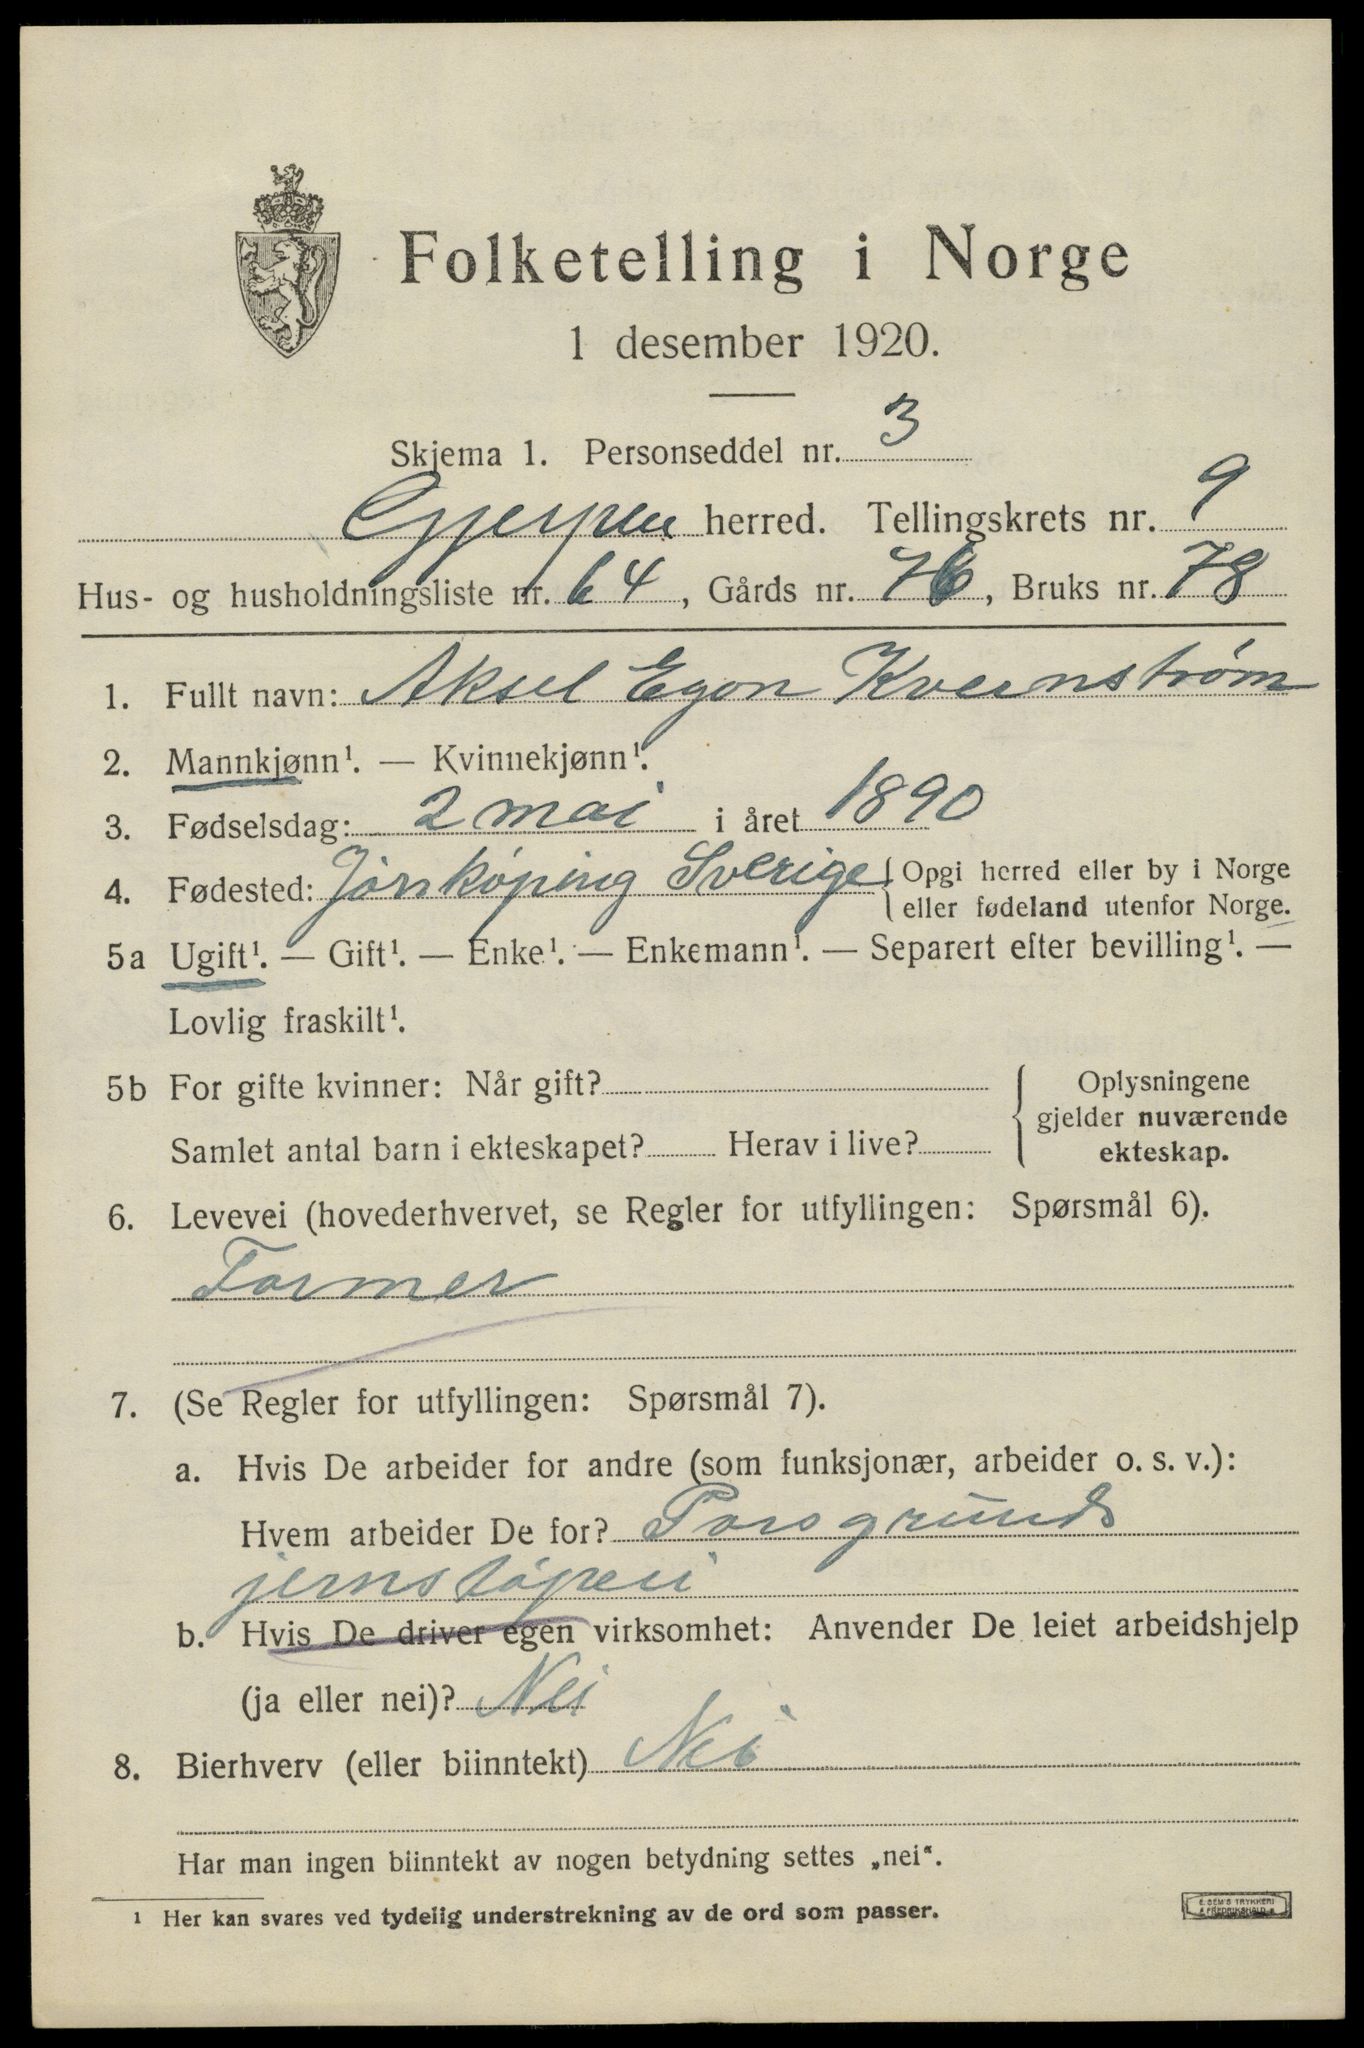 Folketelling i Norge
1 desember 1920.
Skjema 1. Personseddel nr. 3
Gjerpen herred. Tellingskrets nr. 9
Hus- og husholdningsliste nr. 64, Gårds nr. 76, Bruks nr. 78
1. Fullt navn: Aksel Egon Kvernstrøm
2. Mannkjønn¹. — Kvinnekjønn¹.
3. Fødselsdag: 2 mai i året 1890
4. Fødested: Jönköping Sverige { Opgi herred eller by i Norge
eller fødeland utenfor Norge.
5a Ugift¹. — Gift¹. — Enke¹. — Enkemann¹. — Separert efter bevilling¹. —
Lovlig fraskilt¹.
5b For gifte kvinner: Når gift?
Samlet antal barn i ekteskapet? Herav i live?
{ Oplysningene
gjelder nuværende
ekteskap.
6. Levevei (hovederhvervet, se Regler for utfyllingen: Spørsmål 6).
Former
7. (Se Regler for utfyllingen: Spørsmål 7).
a. Hvis De arbeider for andre (som funksjonær, arbeider o. s. v.):
Hvem arbeider De for? Porsgrunds
jernstøperi
b. Hvis De driver egen virksomhet: Anvender De leiet arbeidshjelp
(ja eller nei)? Nei
8. Bierhverv (eller biinntekt) Nei
Har man ingen biinntekt av nogen betydning settes „nei“.
¹ Her kan svares ved tydelig understrekning av de ord som passer.
E. SEM'S TRYKKERI
FREDRIKSHALD